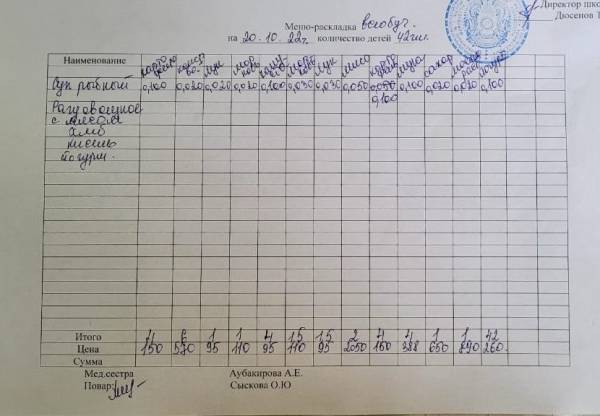 Директор шко
Дюсенов Т
Меню-раскладка всеобуч.
на 20.10.22г. количество детей 42 шт.
Наименование картофель консер во. лук мор ковь капус та морк овь лук мясо карто фель мука сахар масло раст йогурт
Суп рыбный 0,100 0,020 0,020 0,020 0,100 0,030 0,030 0,050 0,100 0,100 0,020 0,020 0,100
Рагу овощное
с мясом
хлеб
кисель
йогурт.
Итого 4 6 1 1 4 1,5 1,5 2 4 4 1 1 42
Цена 150 570 95 110 95 110 95 2050 160 388 650 890 260
Сумма
Мед.сестра Аубакирова А.Е.
Повар: Сыскова О.Ю